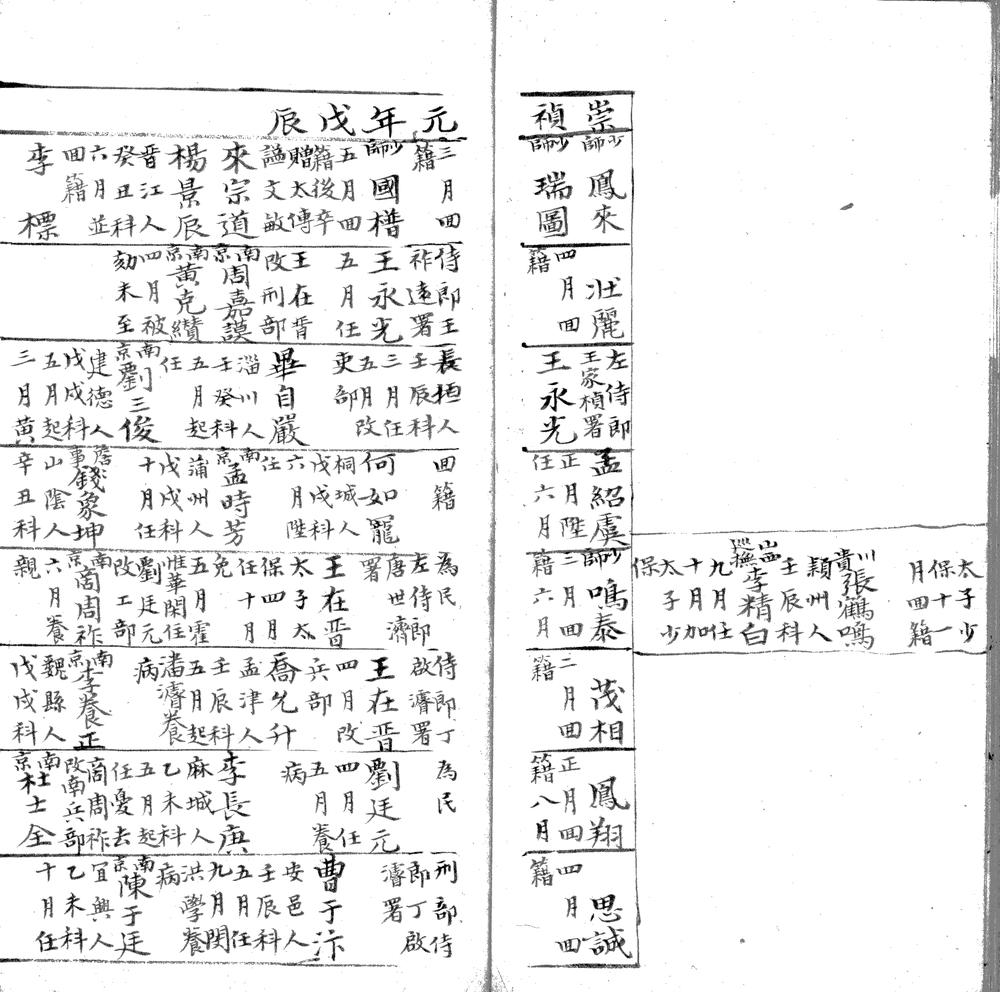 太子少
保十一
月回籍
川
貴張鶴鳴
潁州人
壬辰科
山
巡撫李精白
九月任
十月加
太子少
保
崇
少師鳳來
禎
少師瑞圖
壯麗
四月回
籍
左侍郎
王家楨署
王永光
孟紹虞
正月陞
任六月
少師鳴泰
三月回
籍六月
茂相
二月回
籍
鳳翔
正月回
籍八月
思誠
四月回
籍
元年戊辰
三月回
籍
少師國𣚴
五月回
籍後卒
贈太傅
謚文敏
來宗道
楊景辰
晋江人
癸丑科
六月並
回籍
李標
侍郎王
祚遠署
王永光
五月任
王在晋
改刑部
南京周嘉謨
南京黃克纘
四月被
劾未至
長垣人
壬辰科
三月任
五月改
吏部
畢自嚴
淄川人
壬癸科
五月起
任
南京劉三俊
建德人
戊戌科
五月起
三月黃
回籍
何如寵
桐城人
戊戌科
六月陞
任
南京孟時芳
蒲州人
戊戌科
十月任
詹事錢象坤
山陰人
辛丑科
為民
左侍郎
唐世濟
署
王在晋
太子太
保四月
任十月
免
五月霍
惟華閑住
劉廷元
改工部
南京商周祚
六月養
親
侍郎丁
啟濬署
王在晋
四月改
兵部
喬允升
孟津人
壬辰科
五月起
潘濬養
病
南京李養正
魏縣人
戊戌科
為民
劉廷元
四月任
五月養
病
李長庚
麻城人
乙未科
五月起
任憂去
商周祚
改南兵部
南京杜士全
刑部侍
郎丁啟
濬署
曹于汴
安邑人
壬辰科
五月任
九月閔
洪學養
病
南京陳于廷
宜興人
乙未科
十月任